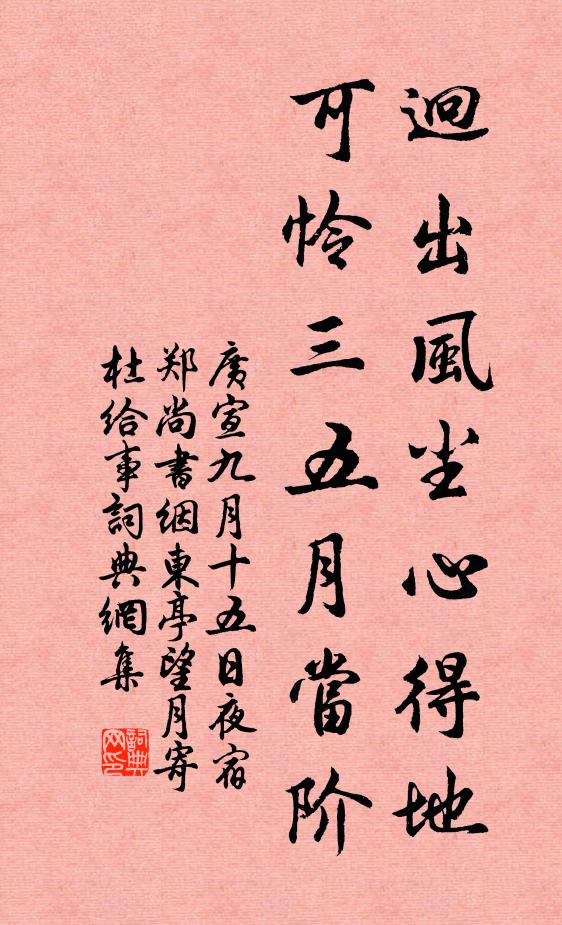 迥出風尘心得地
可怜三五月當阶
廣宣九月十五日夜宿
郑尚書絪東亭望月寄
杜給事詞典網集
詞典网印